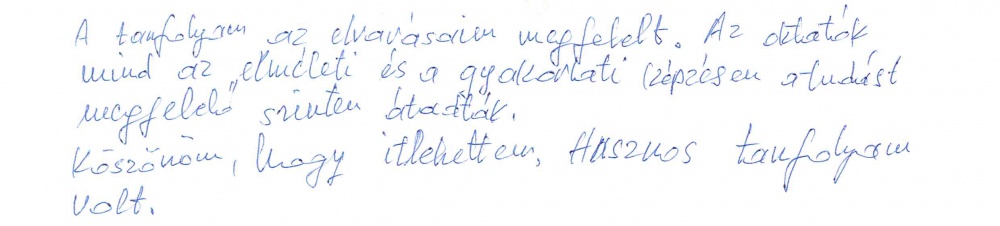 A tanfolyam az elvárásaim megfelelt. Az oktatók
mind az elméleti és a gyakorlati képzésen a tudást
megfelelő szinten átadták.
Köszönöm, hogy itt lehettem, Hasznos tanfolyam
volt.